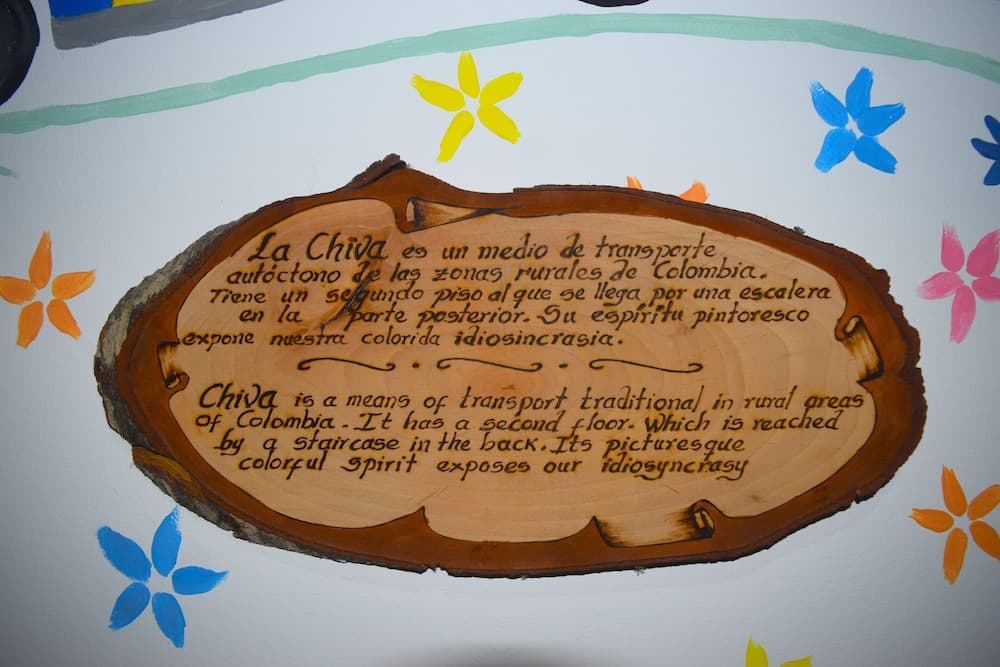 La Chiva es un medio de transporte
autóctono de las zonas rurales de Colombia.
Tiene un segundo piso al que se llega por una escalera
en la parte posterior. Su espíritu pintoresco
expone nuestra colorida idiosincrasia.
Chiva is a means of transport traditional in rural areas
of Colombia. It has a second floor. Which is reached
by a staircase in the back. Its picturesque
colorful spirit exposes our idiosyncrasy